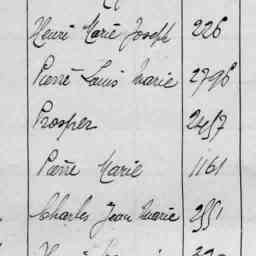 Henri Marie Joseph 226
Pierre Louis Marie 2796
Prosper 2457
Pierre Marie 1161
Charles Jean Marie 2551